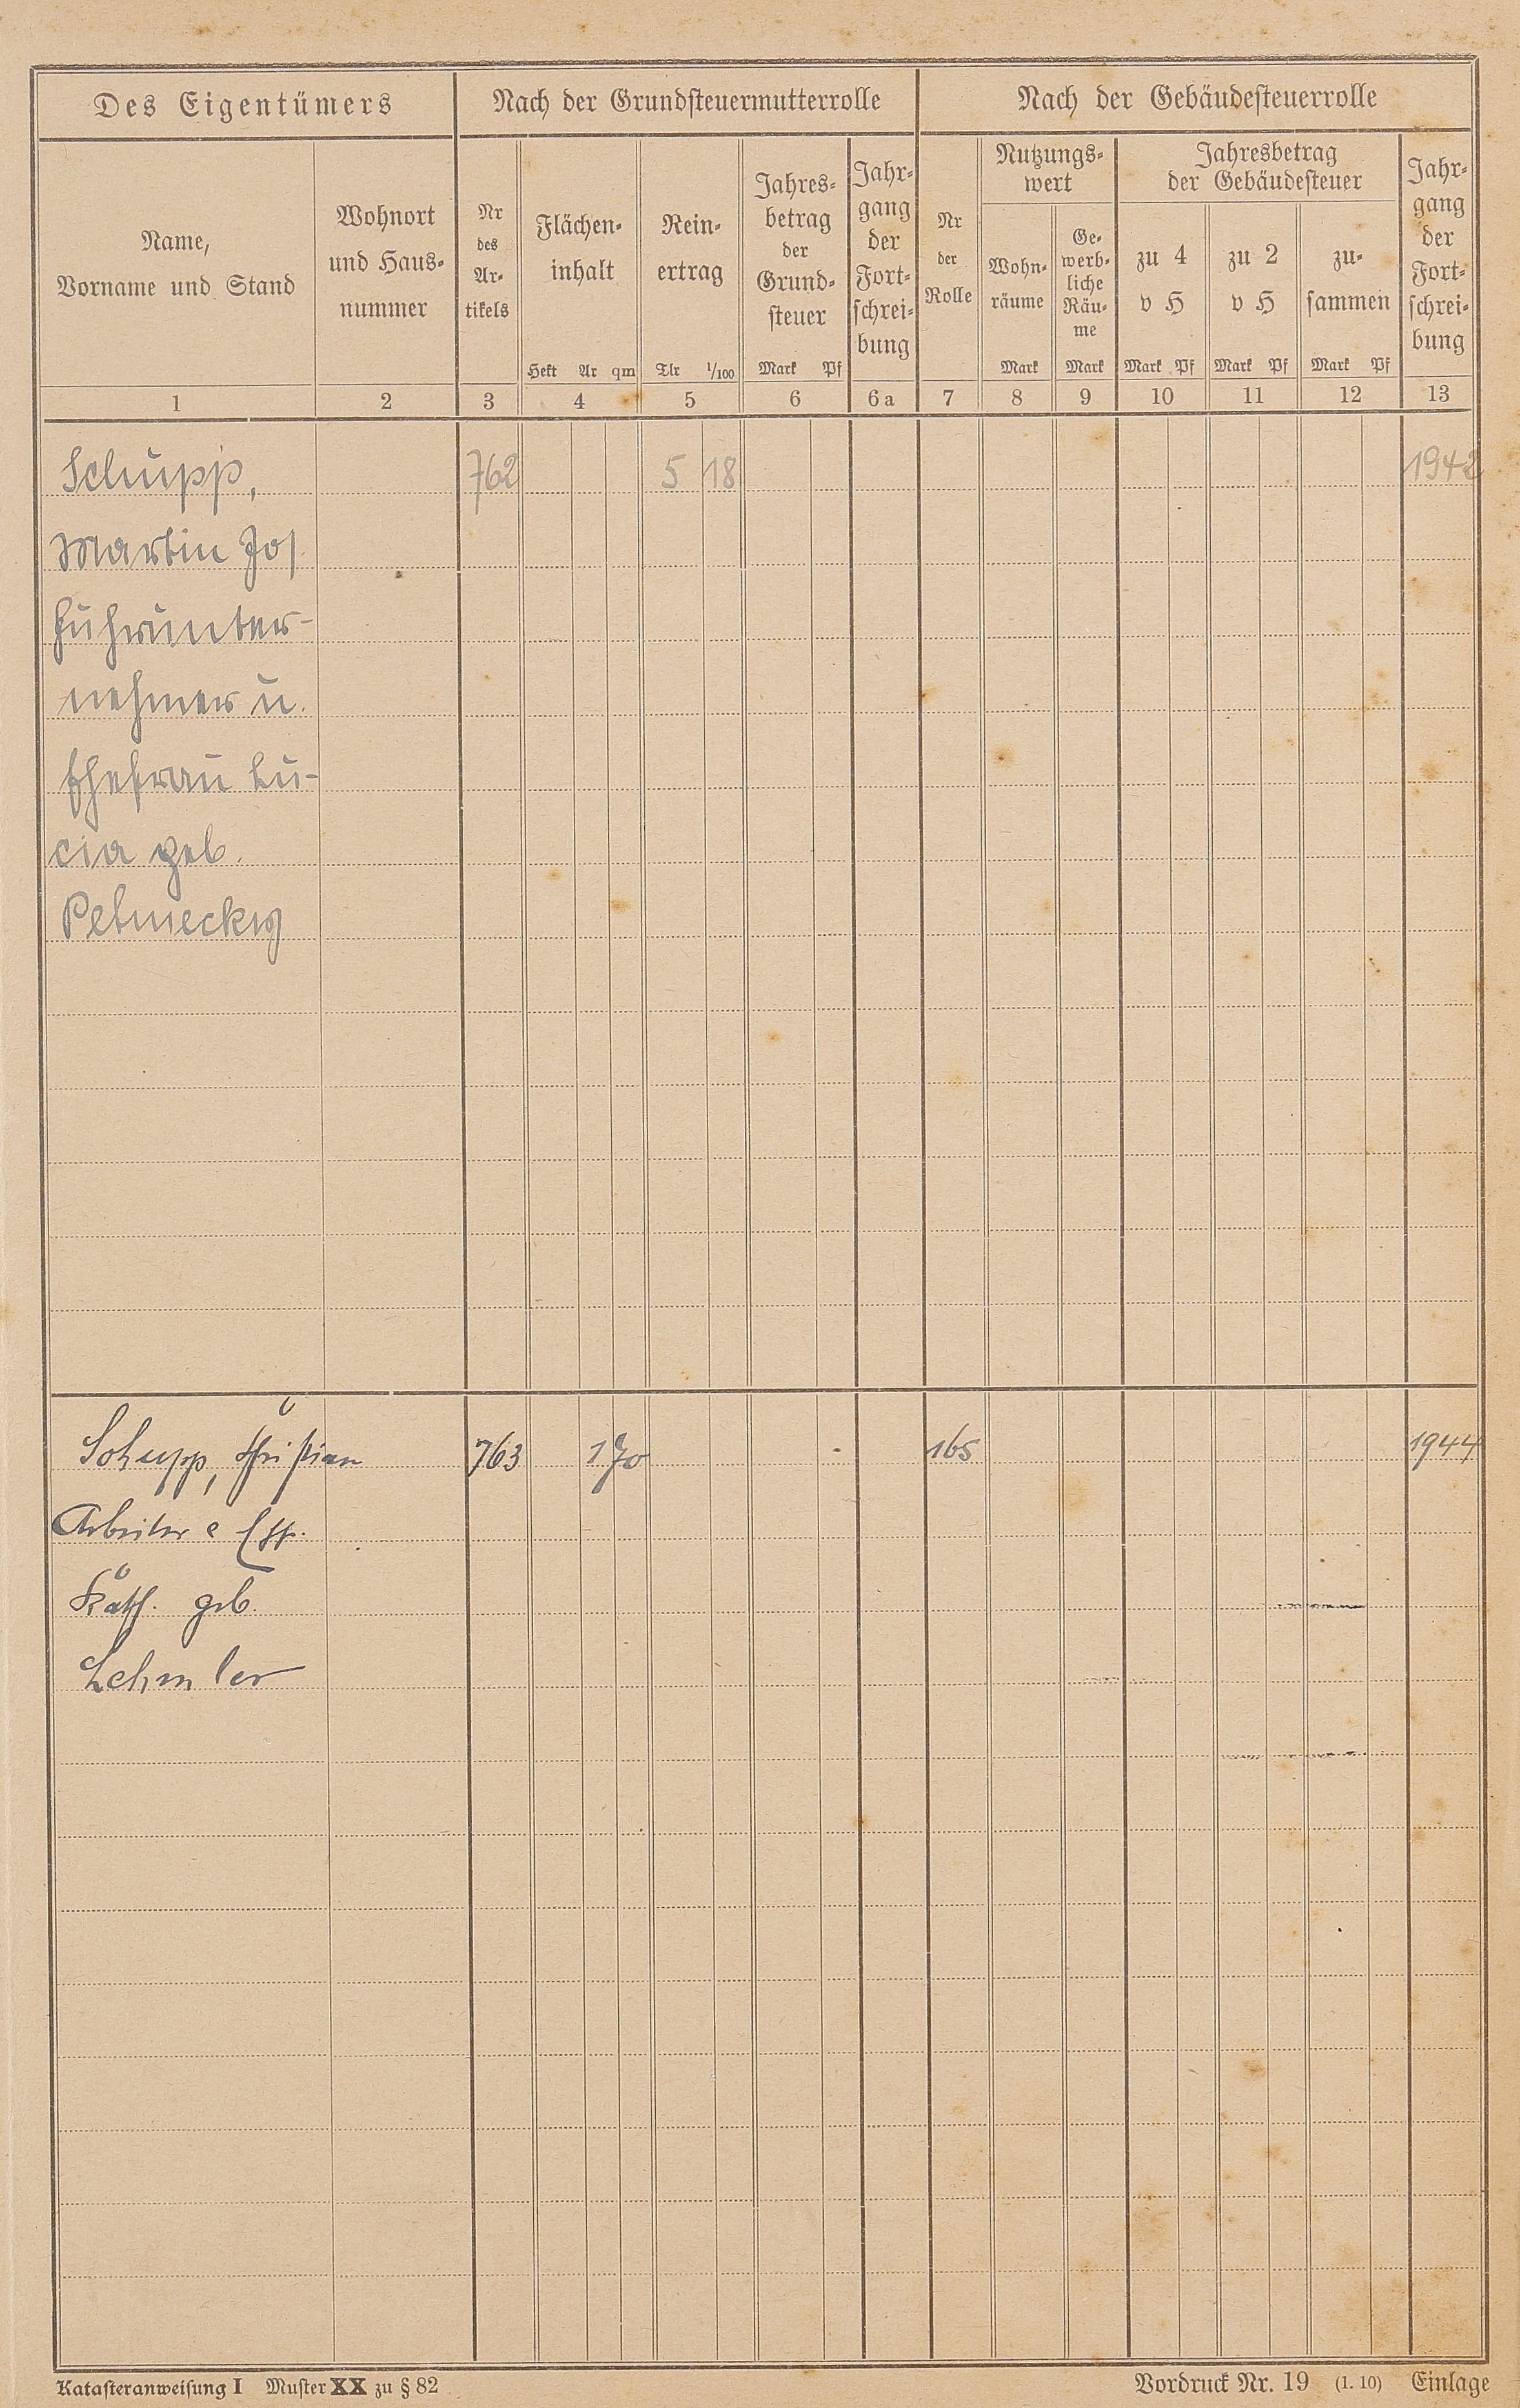 Des Eigentümers
Nach der Grundsteuermutterrolle
Nach der Gebäudesteuerrolle
Name,
Vorname und Stand
Wohnort
und Haus-
nummer
Nr
des
Ar-
tikels
Flächen-
inhalt
Hekt Ar qm
Rein-
ertrag
Tlr 1/100
Jahres-
betrag
der
Grund-
steuer
Mark Pf
Jahr-
gang
der
Fort-
schrei-
bung
Nr
der
Rolle
Nutzungs-
wert
Wohn-
räume
Mark
Ge-
werb-
liche
Räu-
me
Mark
Jahresbetrag
der Gebäudesteuer
zu 4
v H
Mark Pf
zu 2
v H
Mark Pf
zu-
sammen
Mark Pf
Jahr-
gang
der
Fort-
schrei-
bung
1 2 3 4 5 6 6a 7 8 9 10 11 12 13
Schupp, 762 5 18 1942
Martin Jos
Fuhrunter-
nehmer u.
Ehefrau Lu-
cia geb.
Schupp, Christian 763 1 70 165 1944
Arbeiter
Kath. geb.
Lehmler
Katasteranweisung I Muster XX zu § 82
Vordruck Nr. 19 (1. 10) Einlage